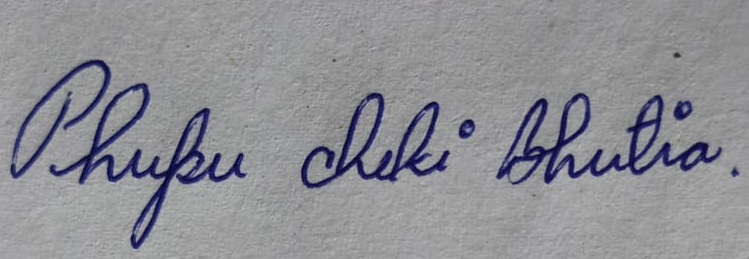 Phupu cheki Bhutia.